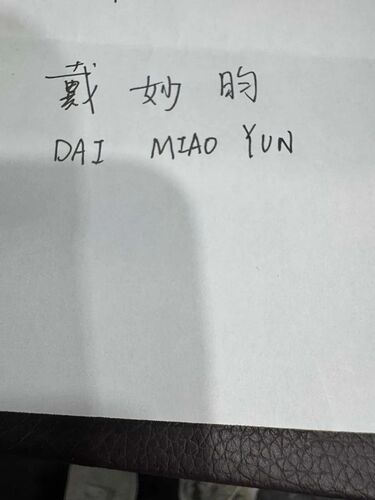 戴 妙 昀
DAI MIAO YUN